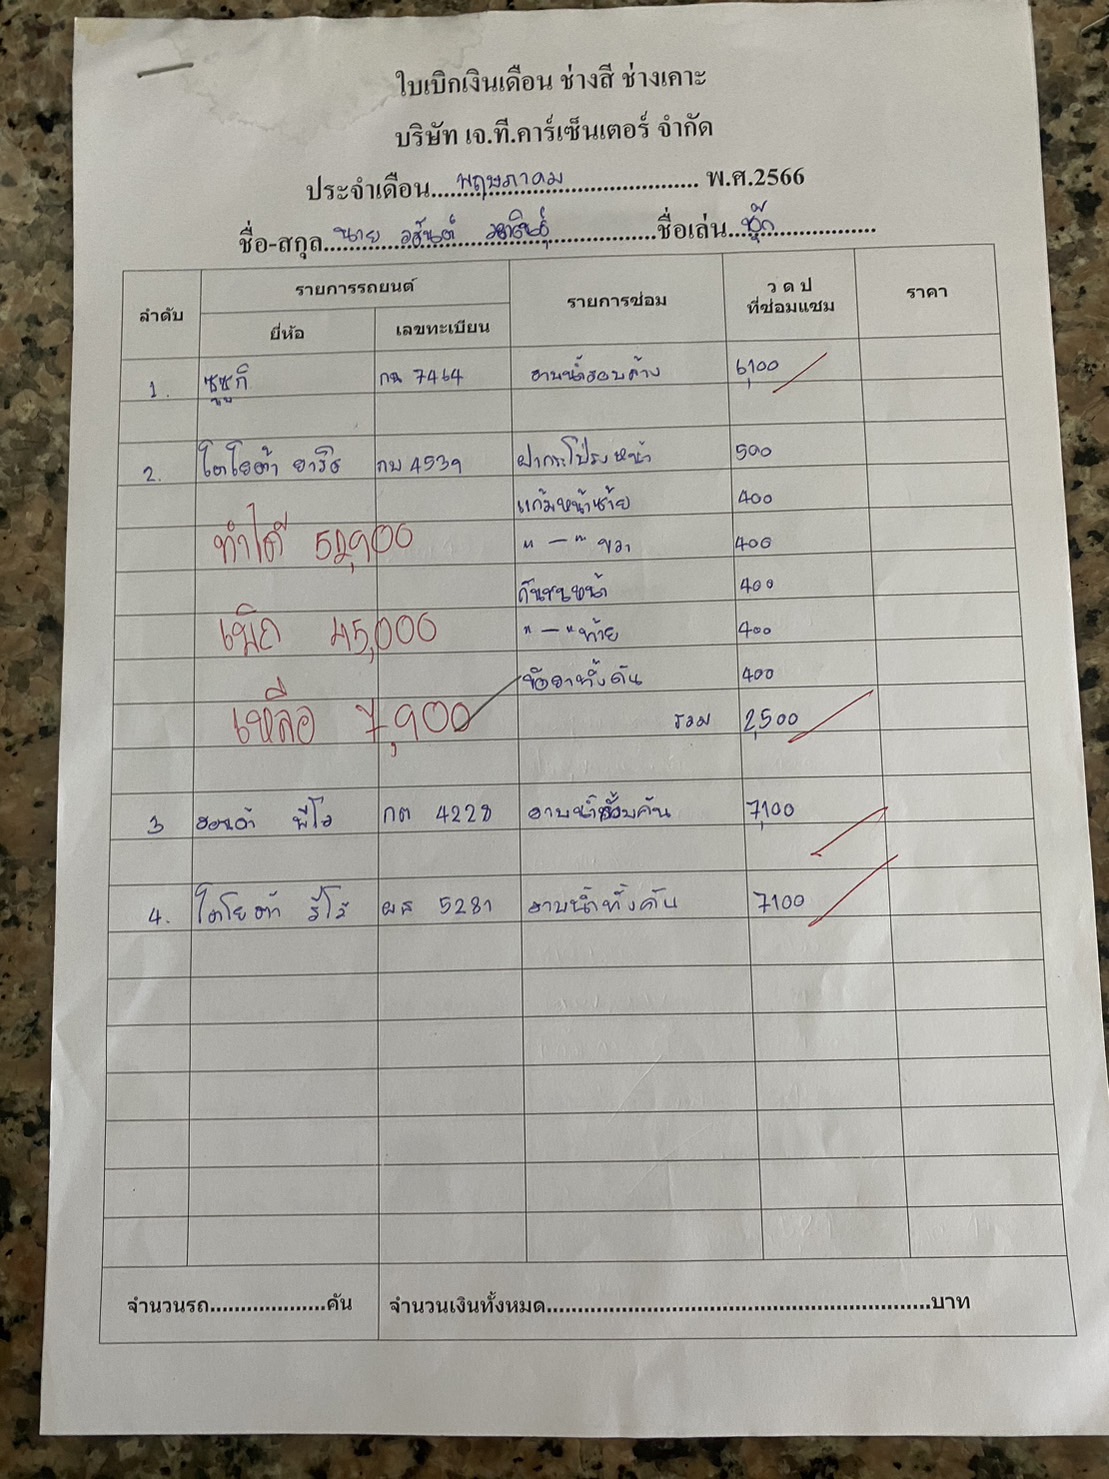 ใบเบิกเงินเดือน ช่างสี ช่างเคาะ
บริษัท เจ.ที.คาร์เซ็นเตอร์ จำกัด
ประจำเดือน....พฤษภาคม.... พ.ศ.2566
ชื่อ-สกุล....นาย....ชื่อเล่น....
ลำดับ รายการรถยนต์ รายการซ่อม ว ด ป ที่ซ่อมแซม ราคา
ยี่ห้อ เลขทะเบียน
1. ซูซูกิ กฉ 7464 อาบน้ำรอบค้าง 6,100
2. โตโยต้า ยาริช กบ 4539 ฝากระโปรงหน้า 500
แก้มหน้าซ้าย 400
ทำได้ 52,900 " — " ขวา 400
กันชนหน้า 400
เบิก 45,000 " — " ท้าย 400
400
เหลือ 7,900 รวม 2,500
3 ฮอนด้า กต 4228 7,100
4. โตโยต้า 5281 อาบน้ำทั้งคัน 7,100
จำนวนรถ....................คัน จำนวนเงินทั้งหมด....................บาท